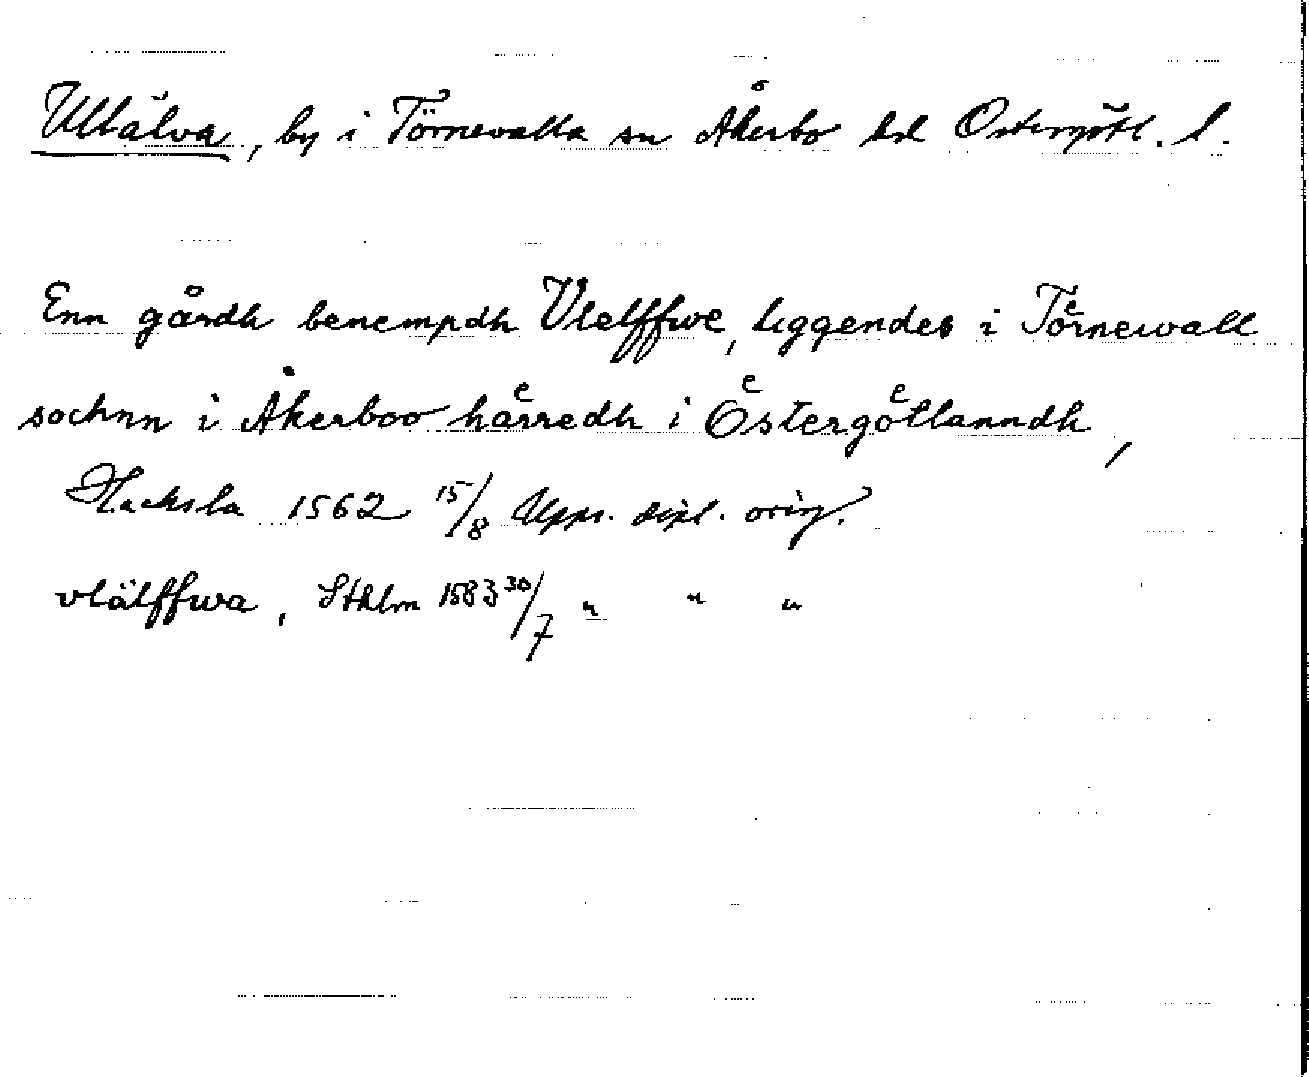 Ullälva, by i Törnevalla sn Åkerbo hd Östergötl. l.
Enn gårdh benempdh Vlelffwe, liggendes i Toͤrnewall
sochnn i Åkerboo haͤrredh i Oͤstergoͤtlanndh,
Hacksla 1562 15/8 Upps. dipl. orig.
vlälffwa, Sthlm 1583 30/7 " " "